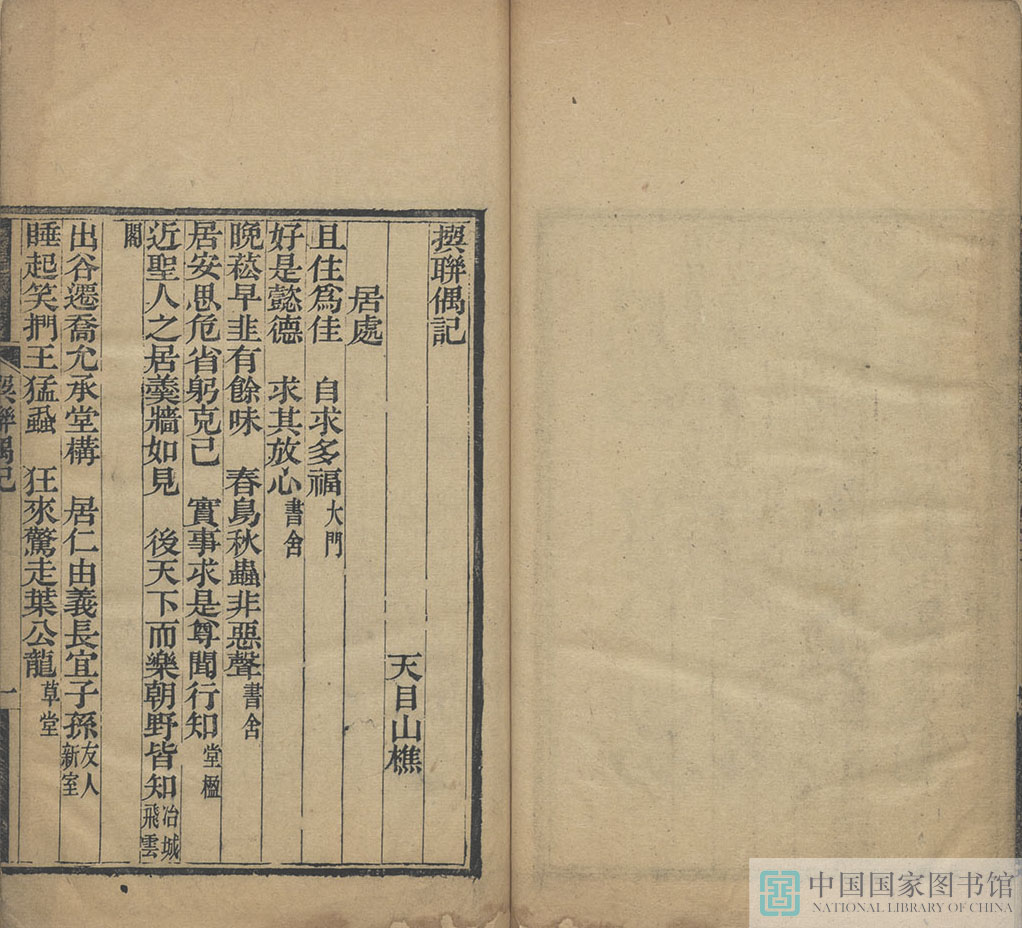 撰聯偶記
天目山樵
居處
且住為佳　自求多福大門
好是懿德　求其放心書舍
晚菘早韭有餘味　春鳥秋蟲非惡聲書舍
居安思危省躬克己　實事求是尊聞行知堂楹
近聖人之居羹牆如見　後天下而樂朝野皆知冶城飛雲
閣
出谷遷喬允承堂構　居仁由義長宜子孫友人新室
睡起笑捫王猛蝨　狂來驚走葉公龍草堂
撰聯偶記
一
中国国家图书馆
NATIONAL LIBRARY OF CHINA